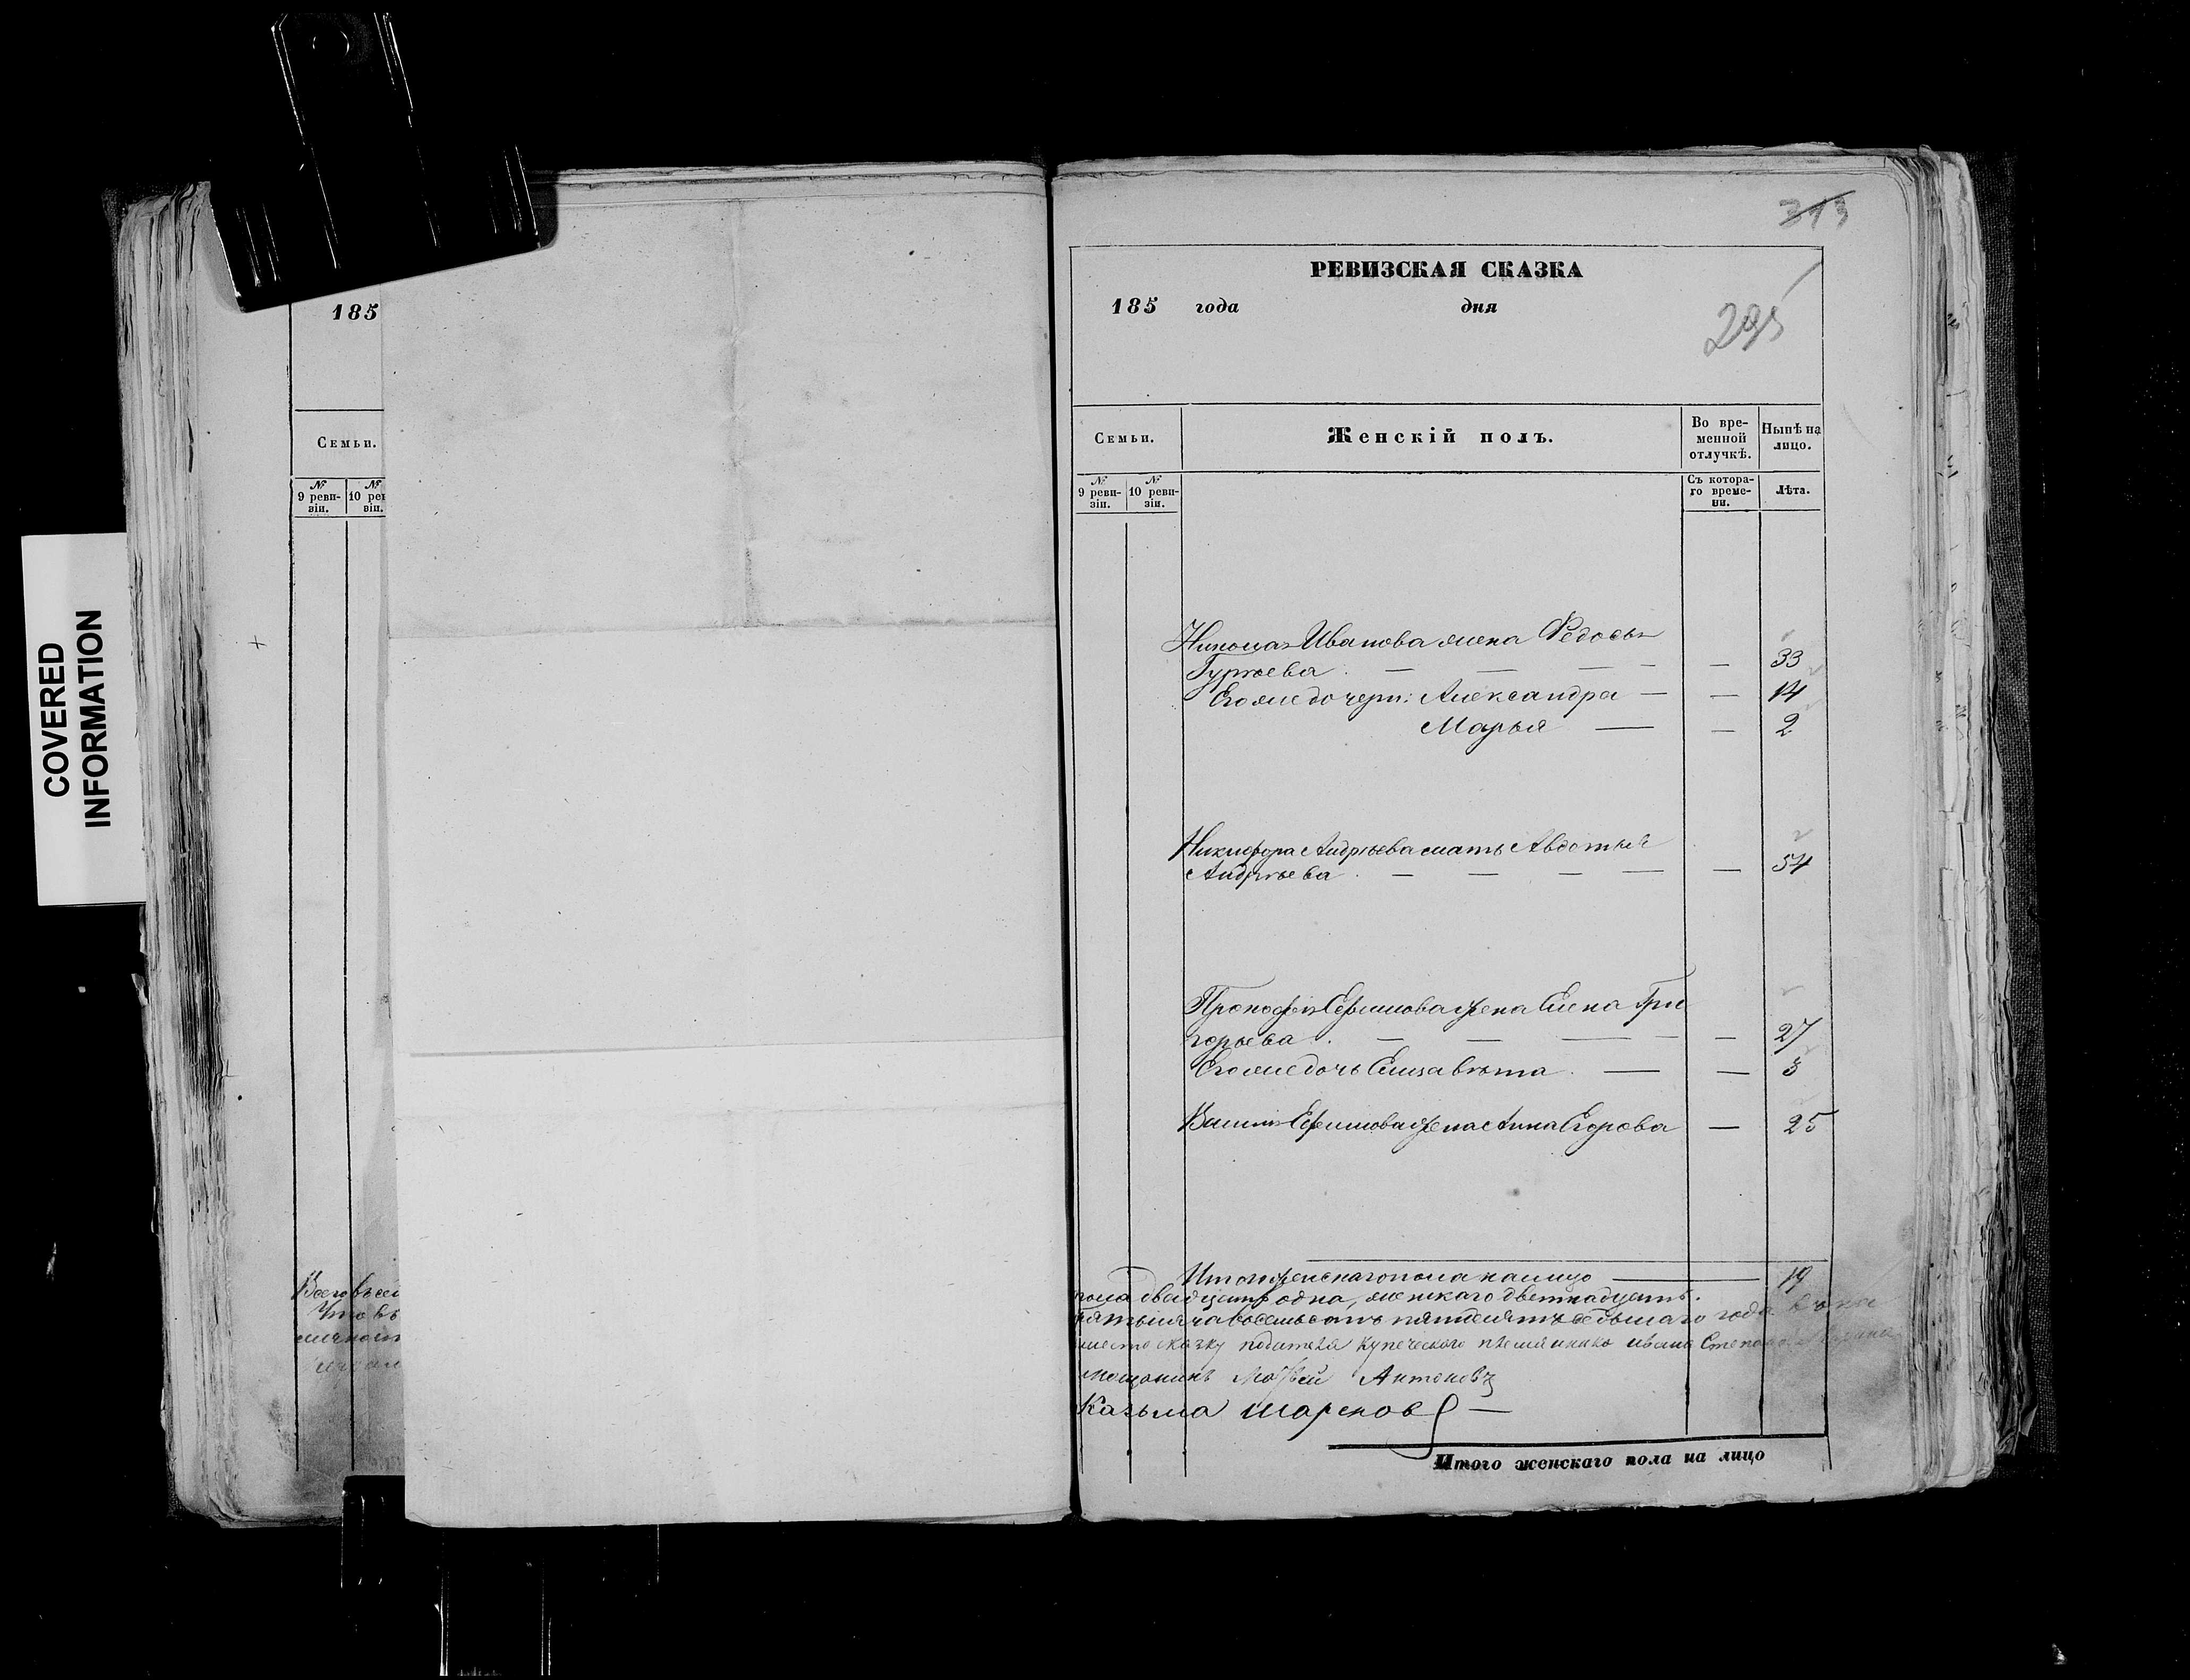 COVERED
INFORMATION
185
Семьи.
№ №
9 реви- 10 рев
зіи. зіи.
Всего въ сей
Что въ
313
РЕВИЗСКАЯ СКАЗКА
185 года дня
295
Семьи. Женскій полъ. Во вре-
менной
отлучкѣ. Нынѣ на
лицо.
№ №
9 реви- 10 реви-
зіи. зіи.
Съ котора-
го време-
ни. Лѣта.
Николая Иванова жена Федосья
Гурьева — — — — — 33
Его же дочери: Александра — — 14
Марья — — 2
Никифора Андрѣева мать Авдотья
Андрѣева — — — — — 54
Прокофія Ефимова жена Елена Гри
горьева — — — — — 27
Его же дочь Елизавѣта — — 3
Василія Ефимова жена Анна Егорова — 25
Итого женскаго пола на лицо — 19
пола двадцать одна, женскаго
тысяча восемьсотъ пятдесятъ седьмаго года
сказку подателя купеческого племянника Ивана
мещанинъ Антоновъ
Казьма Шарепов —
Итого женскаго пола на лицо